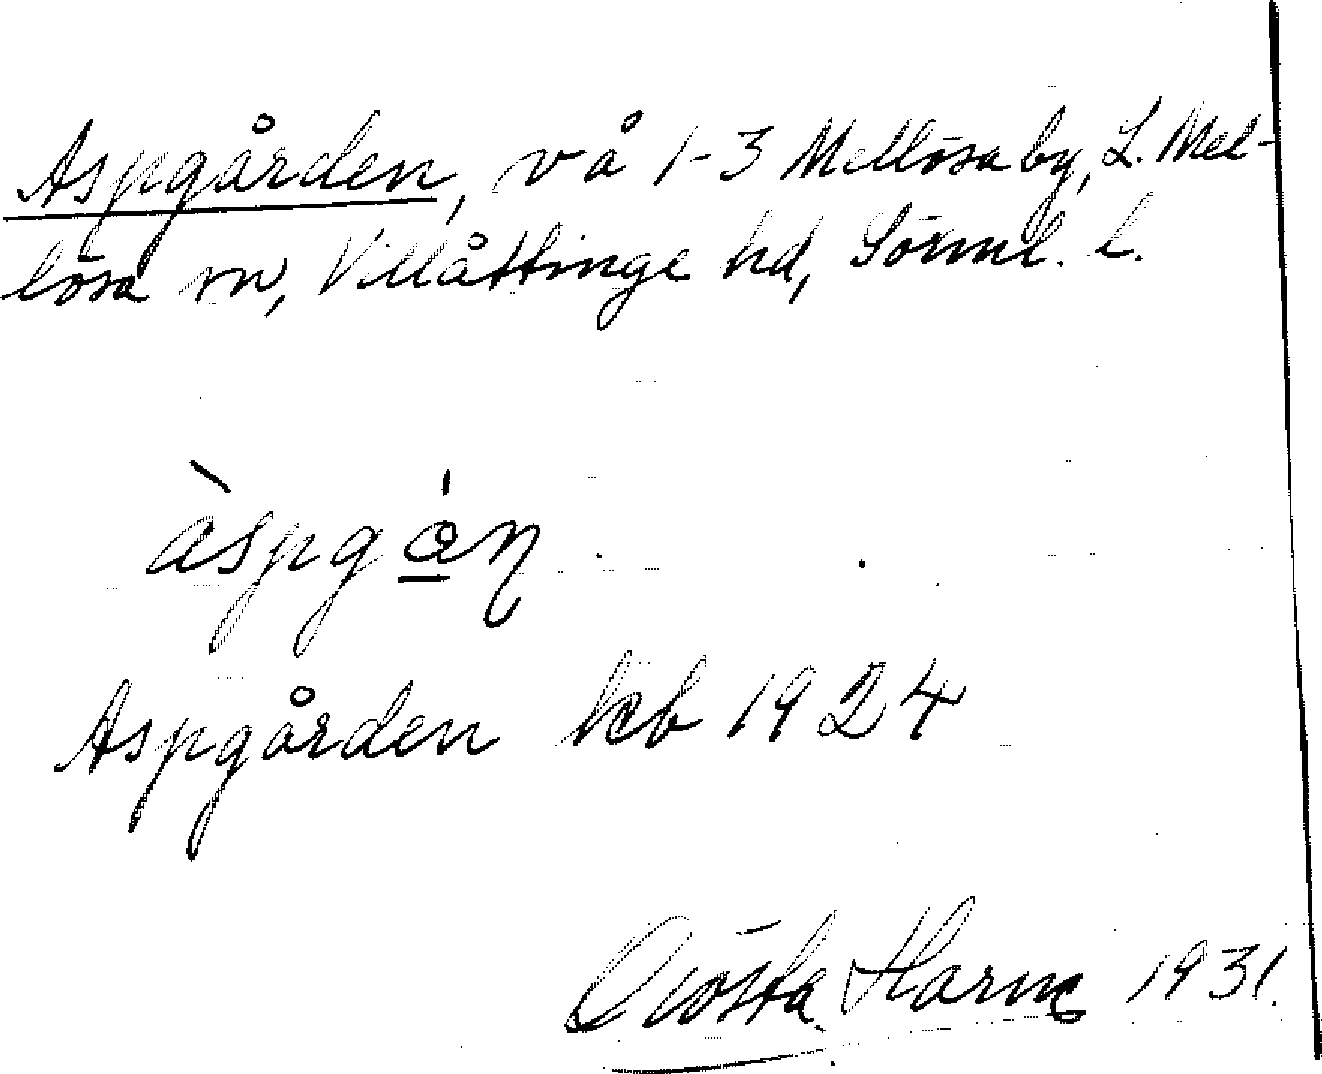 Aspgården, vå 1-3 Mellösa by, L. Mel-
lösa sn, Villåttinge hd, Sörml. l.
àspgǻ̱ɳ
Aspgården kb 1924
Gösta Harne 1931.